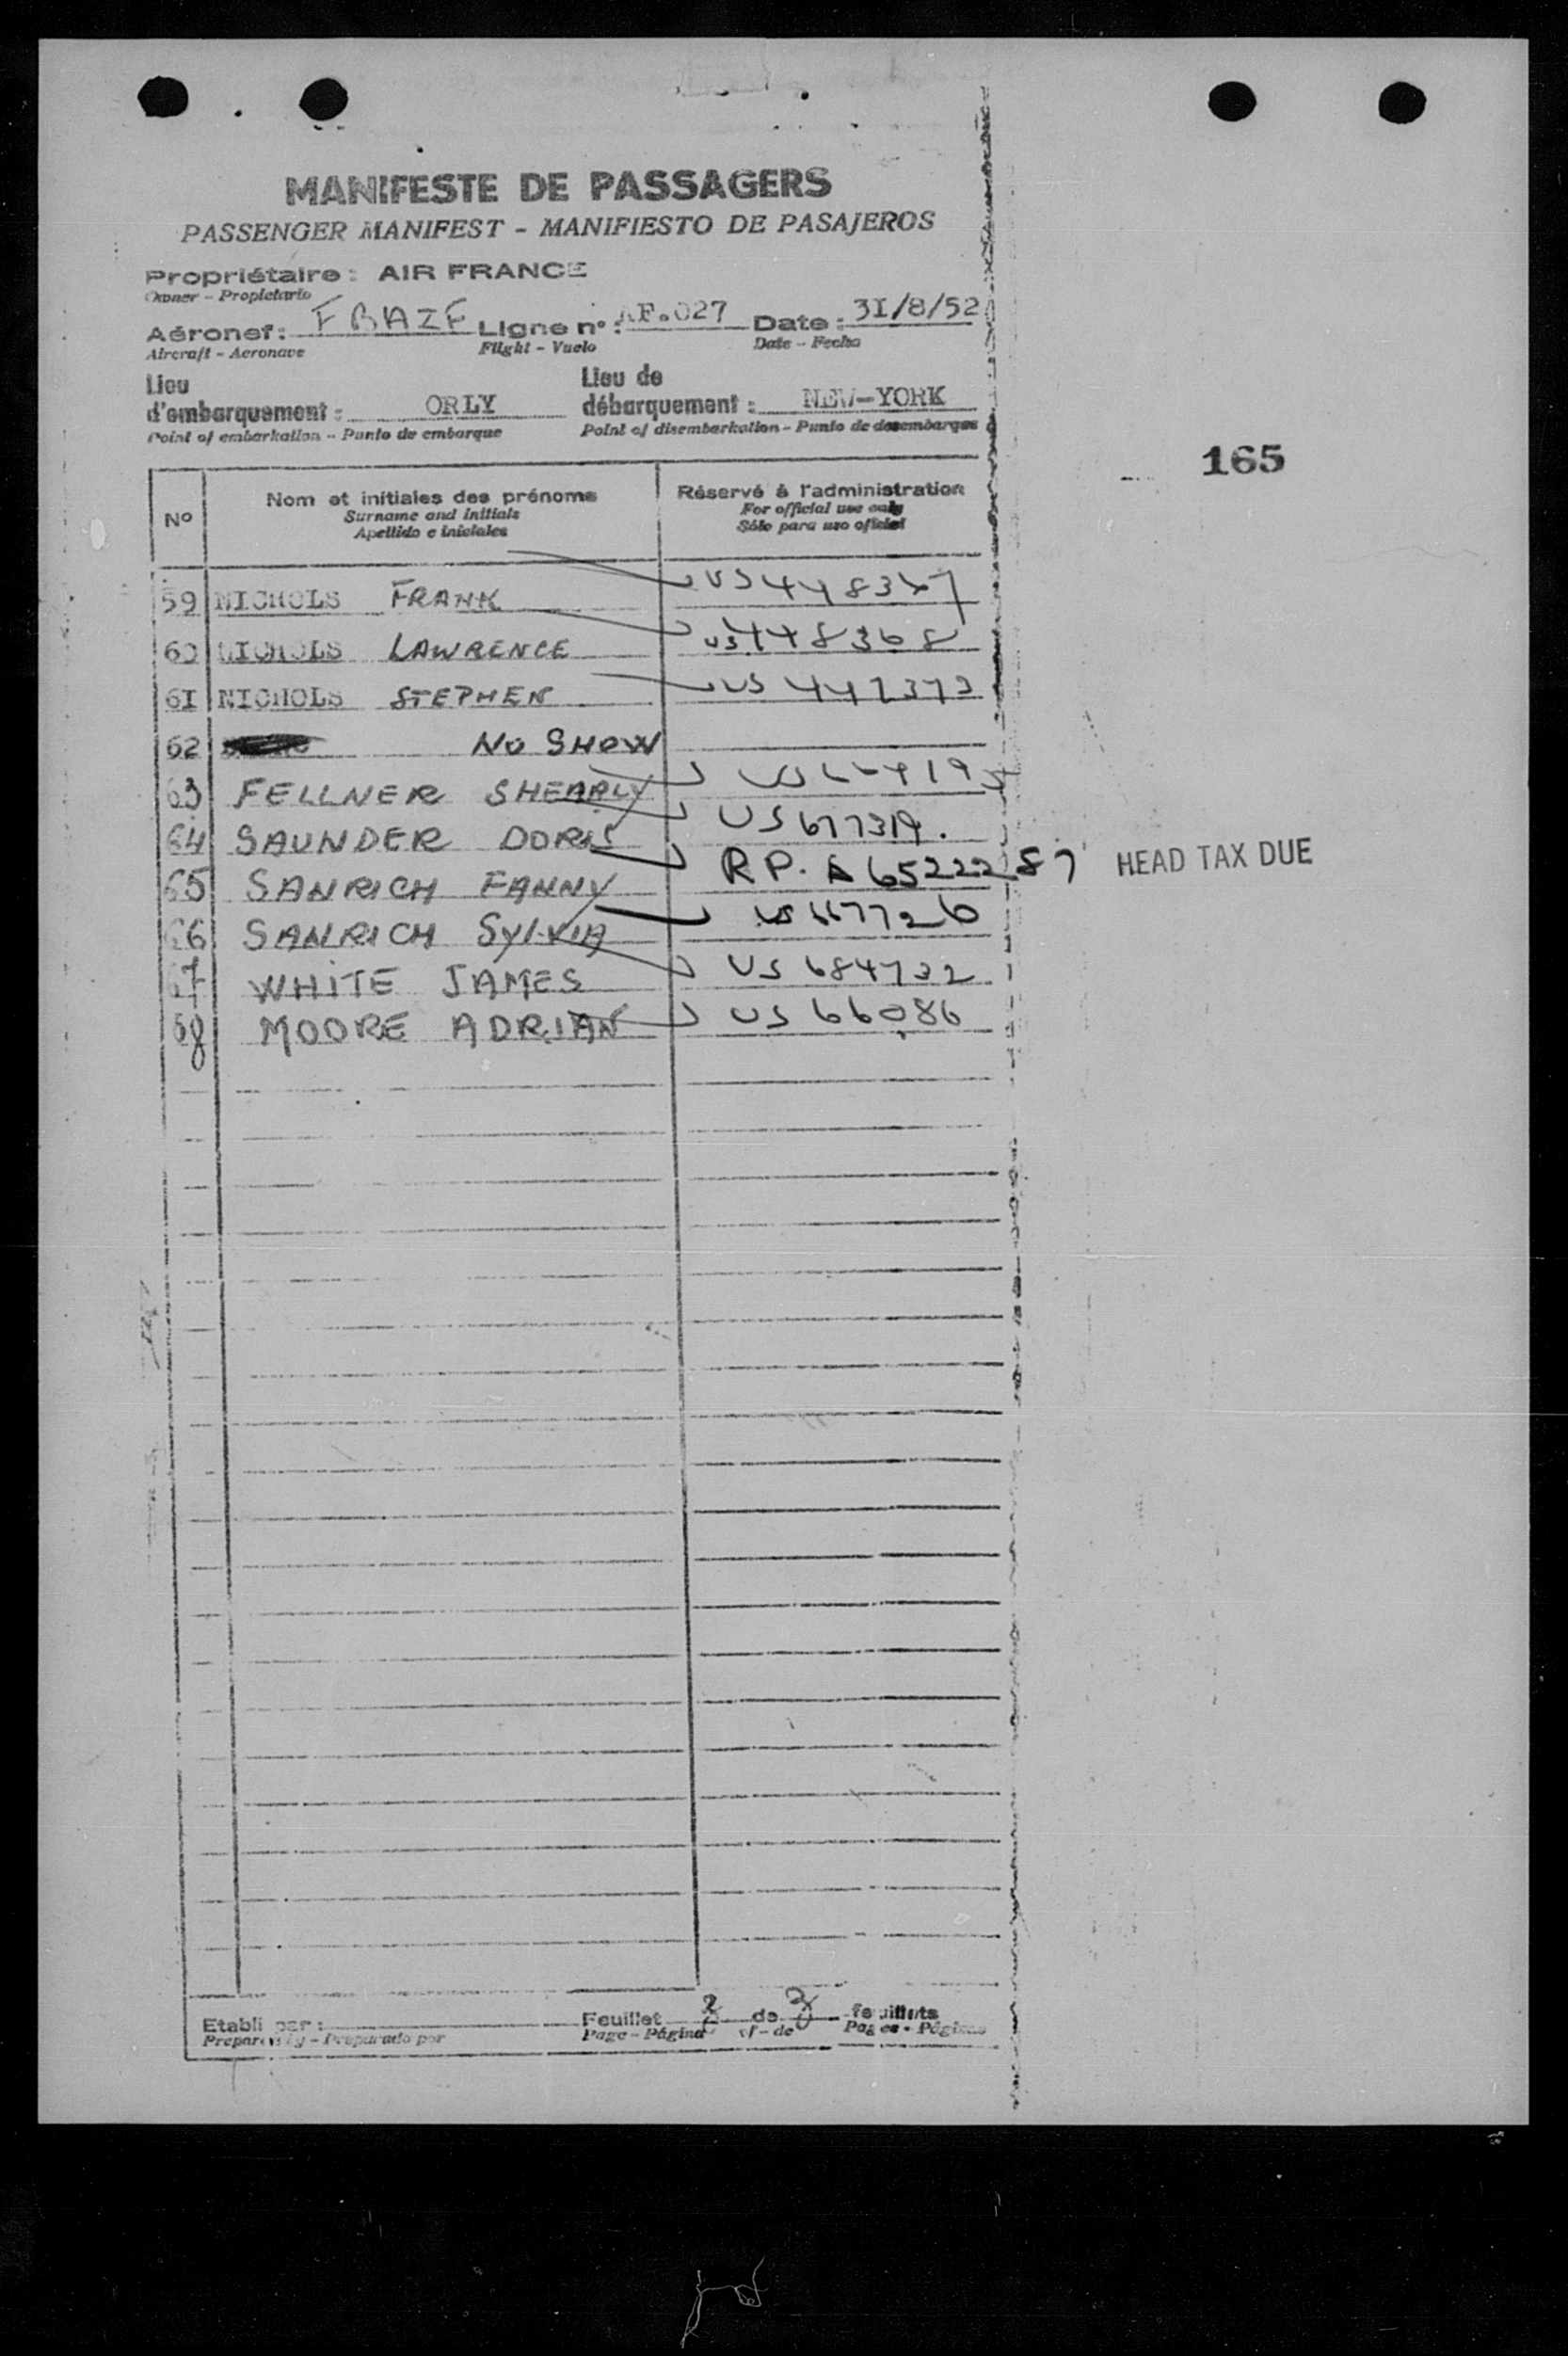 MANIFESTE DE PASSAGERS
PASSENGER MANIFEST - MANIFIESTO DE PASAJEROS
Propriétaire : AIR FRANCE
Owner - Propietario
Aéronef : FBAZF Ligne n° : AF.027 Date : 31/8/52
Aircraft - Aeronave Flight - Vuelo Date - Fecha
Lieu d'embarquement : ORLY Lieu de débarquement : NEW-YORK
Point of embarkation - Punto de embarque Point of disembarkation - Punto de desembarque
165
No Nom et initiales des prénoms Réservé à l'administration
Surname and initials For official use only
Apellido e iniciales Sólo para uso oficial
59 NICHOLS FRANK US 448367
60 NICHOLS LAWRENCE US 448368
61 NICHOLS STEPHEN US
62 NO SHOW
63 FELLNER SHEARLY US
64 SAUNDER DORIS US 677319.
65 SANRICH FANNY R P. A 6522287 HEAD TAX DUE
66 SANRICH SYLVIA US 667726
67 WHITE JAMES US 684732
68 MOORE ADRIAN US 66086
Etabli par : Feuillet de 3 feuillets
Prepared by - Preparado por Page - Página of - de Pages - Páginas